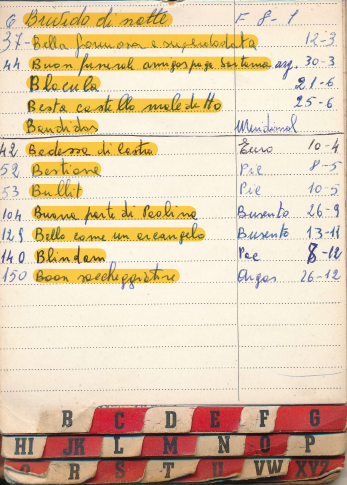 6 Brivido di notte F 8-1
37- Bella formosa e superdotata 12-3
44 Buon funeral amigos paga Sartana arg. 30-3
Blacula 21-6
Besta castello maledetto 25-6
Bandidos Meridional
42 Badessa di Castro Euro 10-4
52 Bestione Pic 8-5
53 Bullit Pic 10-5
104 Buona parte di Paolina Busento 26-9
129 Bello come un arcangelo Busento 13-11
140 Blindam Pac 8-12
150 Boon saccheggiatore Argos 26-12
B C D E F G
HI JK L M N O P
Q R S T U VW XYZ